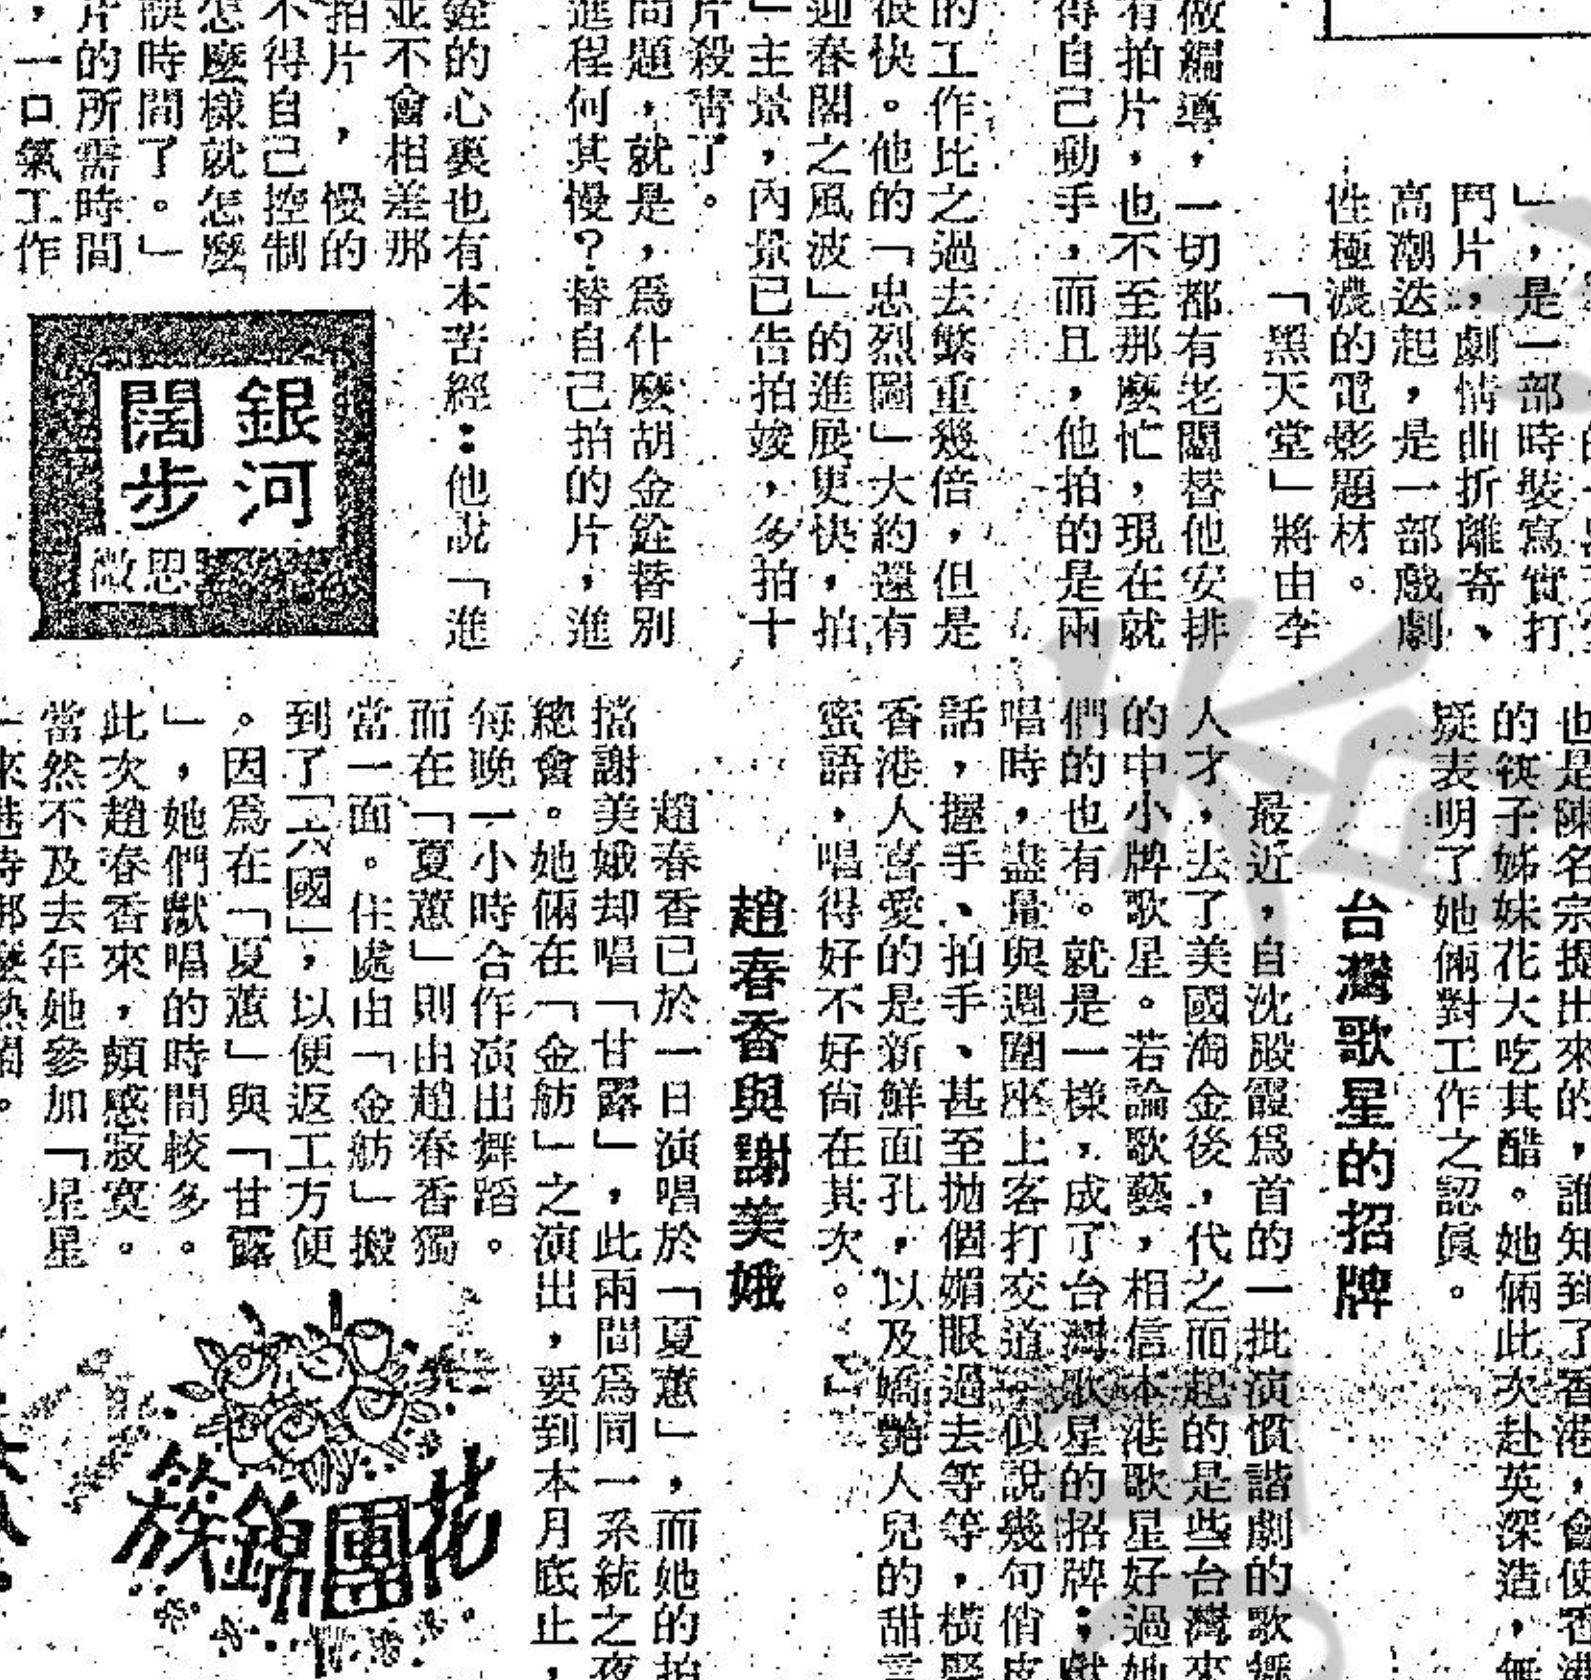 」，是一部時裝寫實打
鬥片，劇情曲折離奇、
高潮迭起，是一部戲劇
性極濃的電影題材。
「黑天堂」將由李
做編導，一切都有老闆替他安排
有拍片，也不至那麼忙，現在就
得自己動手，而且，他拍的是兩
的工作比之過去繁重幾倍，但是
很快。他的「忠烈圖」大約還有
迎春閣之風波」的進展更快，拍
」主景，內景已告拍竣，多拍十
片殺青了。
問題，就是，爲什麼胡金銓替別
進程何其慢？替自己拍的片，進
銓的心裏也有本苦經：他說「進
並不會相差那
拍片，慢的
不得自己控制
怎麼樣就怎麼
誤時間了。」
片的所需時間
，一口氣工作
銀河
闊步
思微
也是陳名宗提出來的，誰知到了香港，會使香港
的筷子姊妹花大吃其醋。她倆此次赴英深造，無
疑表明了她倆對工作之認眞。
台灣歌星的招牌
最近，自沈殿霞爲首的一批演慣諧劇的歌舞
人才，去了美國淘金後，代之而起的是些台灣來
的中小牌歌星。若論歌藝，相信本港歌星好過她
們的也有。就是一樣，成了台灣歌星的招牌；獻
唱時，盡量與週圍座上客打交道，似說幾句俏皮
話，握手、拍手、甚至拋個媚眼過去等等，橫豎
香港人喜愛的是新鮮面孔，以及嬌艷人兒的甜言
蜜語，唱得好不好尙在其次。
趙春香與謝美娥
趙春香已於一日演唱於「夏蕙」，而她的拍
擋謝美娥却唱「甘露」，此兩間爲同一系統之夜
總會。她倆在「金舫」之演出，要到本月底止，
每晚一小時合作演出舞蹈。
而在「夏蕙」則由趙春香獨
當一面。住處由「金舫」搬
到了「六國」，以便返工方便
。因爲在「夏蕙」與「甘露
」，她們獻唱的時間較多。
此次趙春香來，頗感寂寞。
當然不及去年她參加「星星
」來港時那麼熱鬧。
花團錦簇